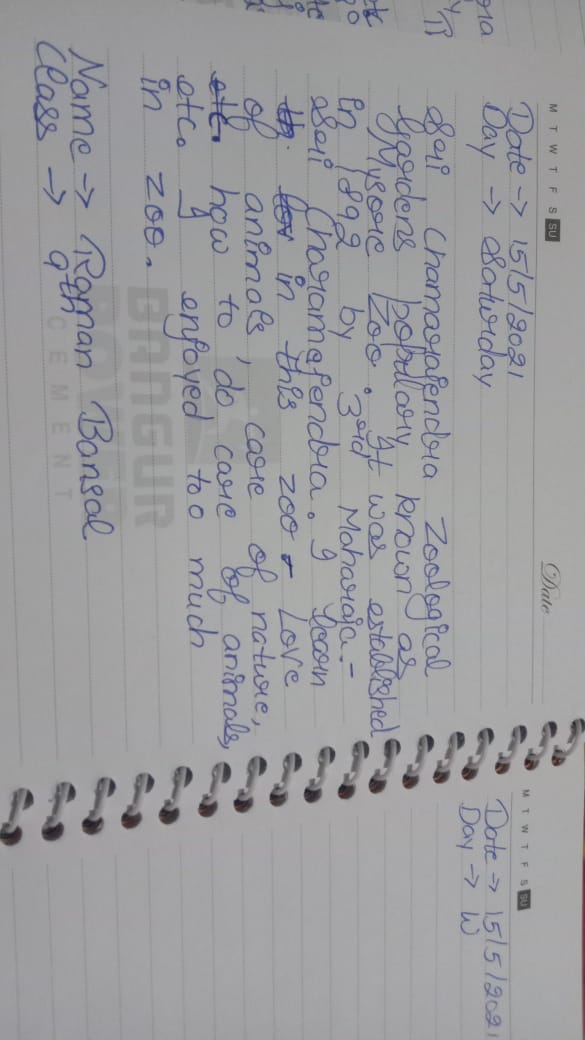 M T W T F S SU
Date
Date → 15/5/2021
Day → Saturday
Sri Chamarajendra Zoological
Gardens popularly known as
Mysore Zoo. It was established
in 1892 by 3rd Maharaja -
Sri Charamejendra. I learn
in this zoo - Love
of animals, care of nature,
how to do care of animals,
etc. I enjoyed too much
in zoo.
Name → Raman Bansal
Class → 9th
BANGUR
POWER
CEMENT
M T W T F S SU
Date → 15/5/2021
Day → W